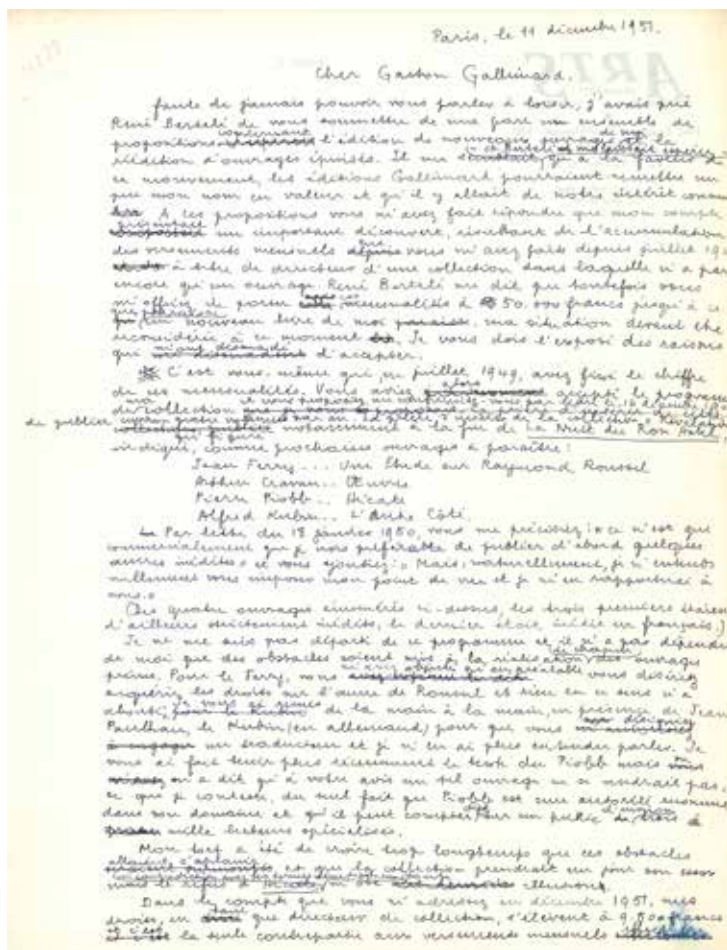 Paris, le 11 décembre 1951.
ARTS
Cher Gaston Gallimard,
faute de jamais pouvoir vous parler à loisir, j'avais prié
René Bertelé de vous soumettre de ma part un ensemble de
propositions concernant l'édition de nouveaux ouvrages de moi et la
réédition d'ouvrages épuisés. Il me semblait, qu'à la faveur de
ce mouvement, les éditions Gallimard pourraient remettre un
peu mon nom en valeur et qu'il y allait de notre intérêt commun
A ces propositions vous m'avez fait répondre que mon compte
présentait un important découvert, résultant de l'accumulation
des versements mensuels que vous m'avez faits depuis juillet 194
à titre de directeur d'une collection dans laquelle n'a paru
encore qu'un ouvrage. René Bertelé me dit que toutefois vous
m'offriez de porter ces mensualités à 50.000 francs jusqu'à ce
que un nouveau livre de moi, ma situation devant être
reconsidérée à ce moment. Je vous dois l'exposé des raisons
qui d'accepter.
C'est vous-même qui, en juillet 1949, avez fixé le chiffre
de ces mensualités. Vous aviez alors accepté le programme
de collection
de publier notamment à la fin de La Nuit du Rose Hôtel,
indiqué, comme prochains ouvrages à paraître :
Jean Ferry... Une Étude sur Raymond Roussel
Arthur Cravan.. Œuvres
Pierre Piobb.. Hécate
Alfred Kubin.. L'Autre Côté.
Par lettre du 18 janvier 1950, vous me précisiez : « ce n'est que
commercialement que je crois préférable de publier d'abord quelques
œuvres inédites » et vous ajoutiez : « Mais, naturellement, je n'entends
nullement vous imposer mon point de vue et je m'en rapporterai à
vous. »
(Des quatre ouvrages énumérés ci-dessus, les trois premiers étaient
d'ailleurs strictement inédits, le dernier était inédit en français.)
Je ne me suis pas départi de ce programme et il n'a pas dépendu
de moi que des obstacles soient mis à la réalisation de chacun des ouvrages
prévus. Pour le Ferry, vous m'avez objecté qu'au préalable vous désiriez
acquérir les droits sur l'œuvre de Roussel et rien en ce sens n'a
abouti. Je vous ai remis de la main à la main, en présence de Jean
Paulhan, le Kubin (en allemand) pour que vous désigniez
un traducteur et je n'en ai plus entendu parler. Je
vous ai fait tenir plus récemment le texte du Piobb mais
m'a dit qu'à votre avis un tel ouvrage ne se vendrait pas,
ce que je conteste, du seul fait que Piobb est une autorité reconnue
dans son domaine et qu'il peut compter sur un public d'environ trois à
mille lecteurs spécialisés.
Mon tort a été de croire trop longtemps que ces obstacles
allaient s'aplanir et que la collection prendrait un jour son essor
mais le refus d'Hécate illusions.
Dans le compte que vous m'adressez en décembre 1951, mes
droits, en tant que directeur de collection, s'élèvent à 9.800 francs
la seule contrepartie aux versements mensuels